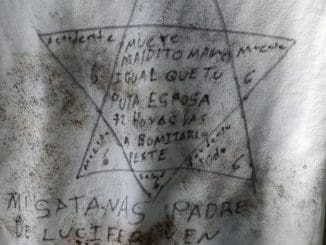 Accidente
MUERE
MALDITO
Muerte
IGUAL QUE TU
6
PUTA ESPOSA
6
72 HORAS VAS
A BOMITARLO
PESTE
Muerte
6
6
6
todo
MI SATANAS PADRE
DE LUCIFER VEN